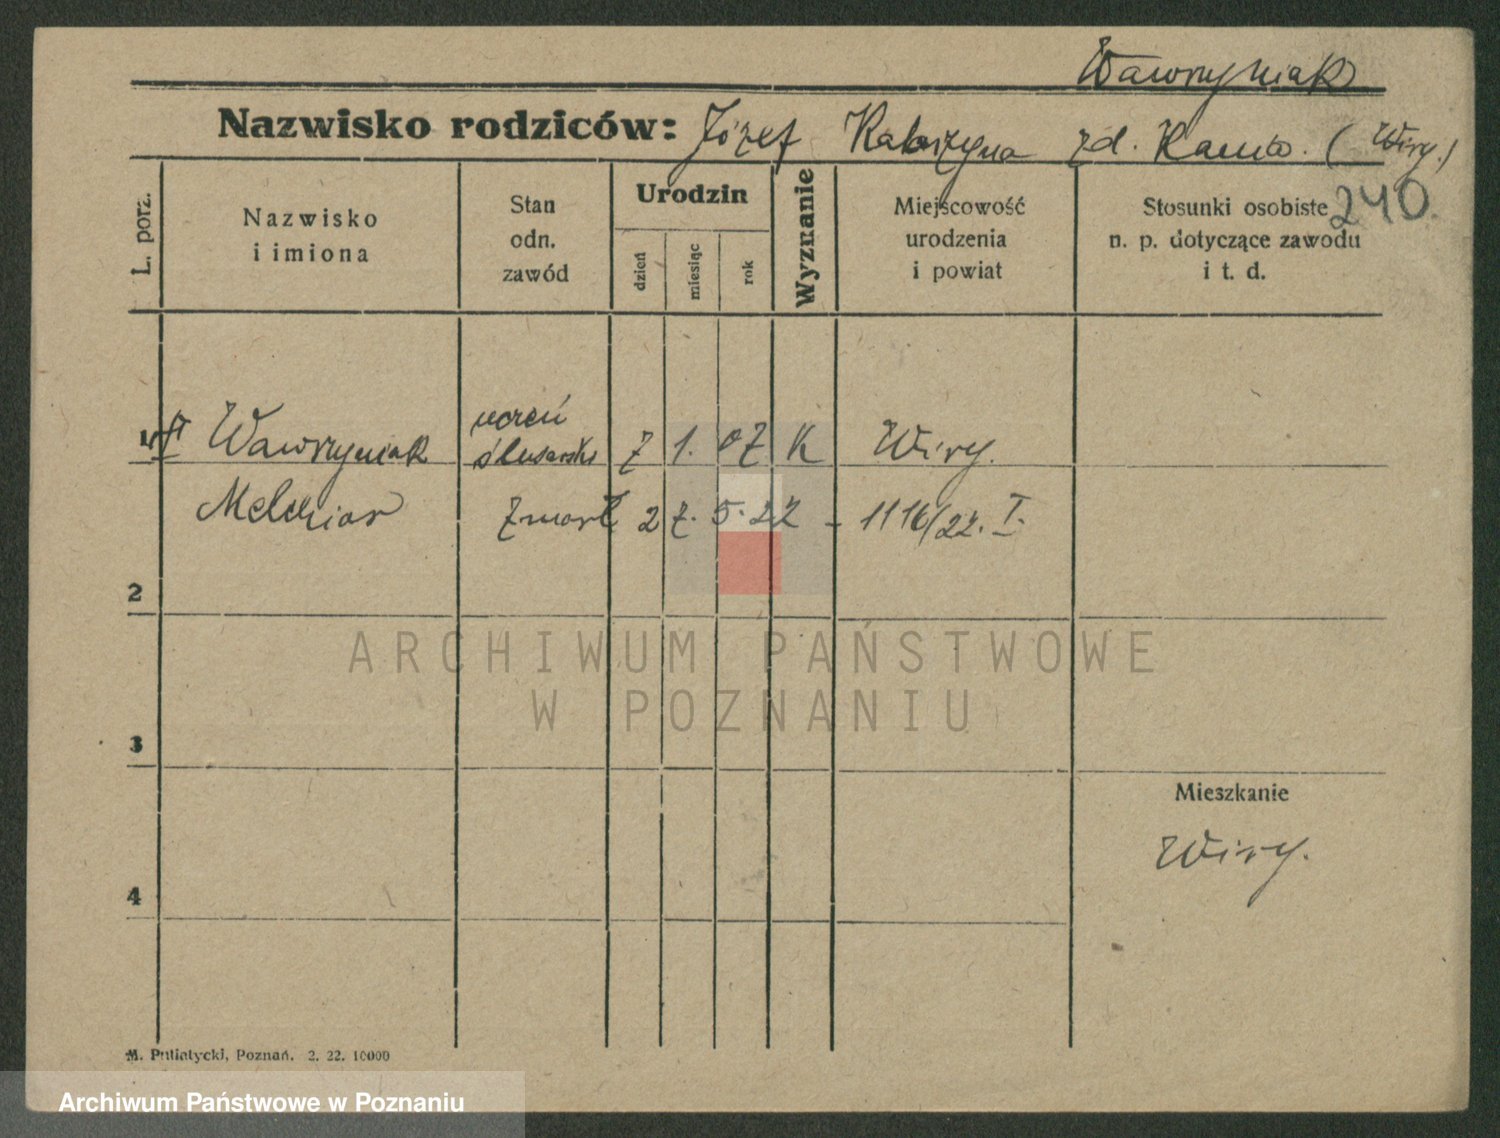 Wawrzyniak
Nazwisko rodziców: Józef Katarzyna zd. (Wiry.)
240.
L. porz.
Nazwisko
i imiona
Stan
odn.
zawód
Urodzin
dzień
miesiąc
rok
Wyznanie
Miejscowość
urodzenia
i powiat
Stosunki osobiste
n. p. dotyczące zawodu
i t. d.
uczeń
1 Wawrzyniak ślusarski 7 1. 07 K Wiry.
Melchior zmarł 27. 5. 22 - 1116/22. I.
2
3
Mieszkanie
Wiry.
4
M. Putiatycki, Poznań. 2. 22. 10000
ARCHIWUM PAŃSTWOWE
W POZNANIU
Archiwum Państwowe w Poznaniu